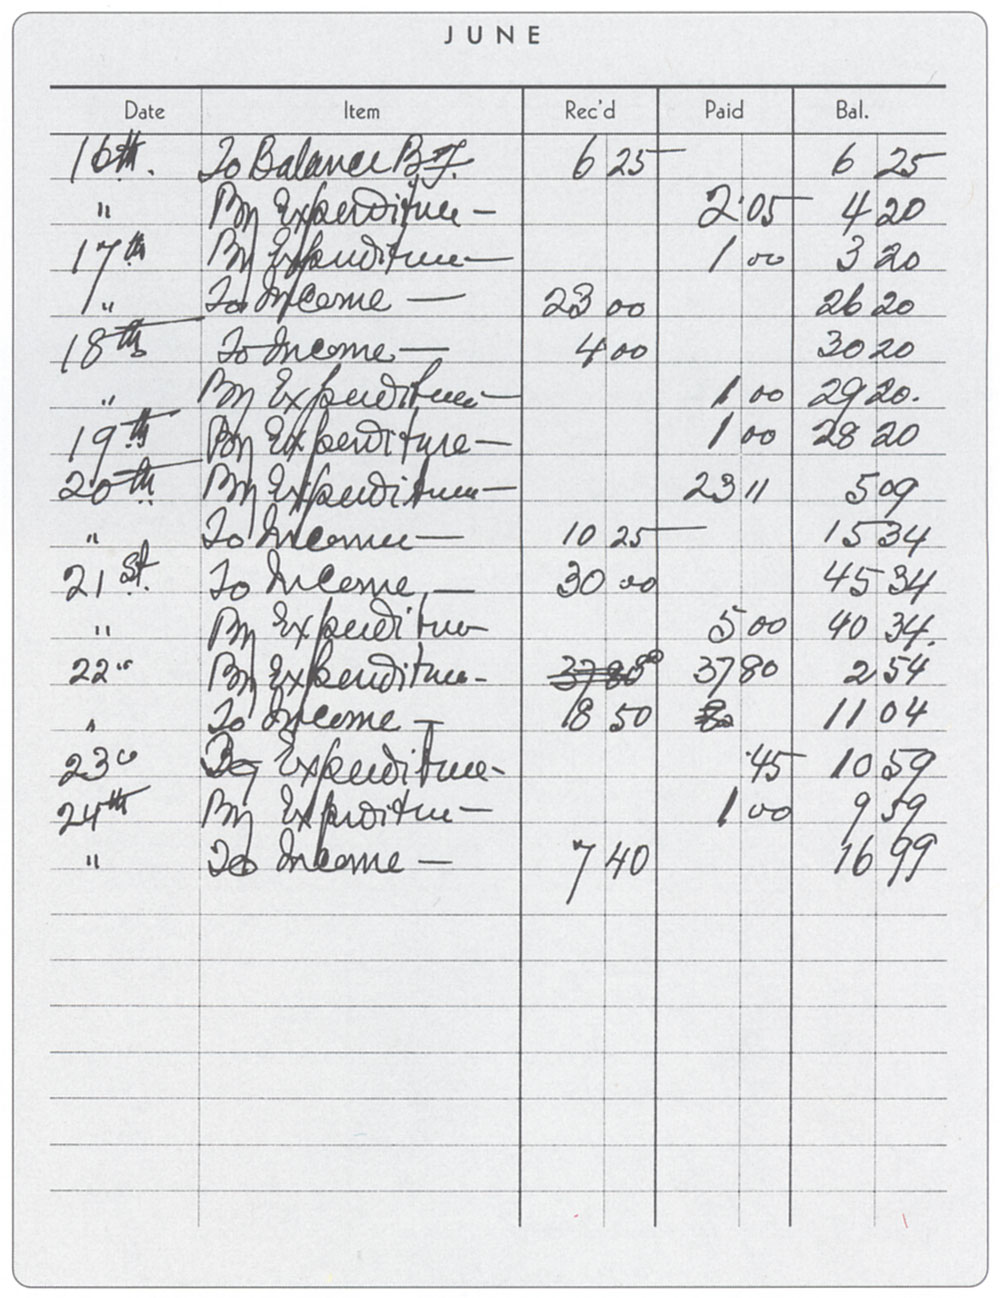 JUNE
Date Item Rec'd Paid Bal.
16th. To Balance B.F. 6 25 — 6 25
" By Expenditure — 2.05 — 4 20
17th By Expenditure — 1 00 3 20
" To Income — 23 00 26 20
18th To Income — 4 00 30 20
" By Expenditure — 1 00 29 20.
19th By Expenditure — 1 00 28 20
20th By Expenditure — 23 11 5 09
" To Income — 10 25 — 15 34
21st. To Income — 30 00 45 34
" By Expenditure 5 00 40 34.
22" By Expenditure - 37 80 37 80 2 54
" To Income — 18 50 11 04
23" By Expenditure - .45 10 59
24th By Expenditure — 1 00 9 59
" To Income — 7 40 16 99